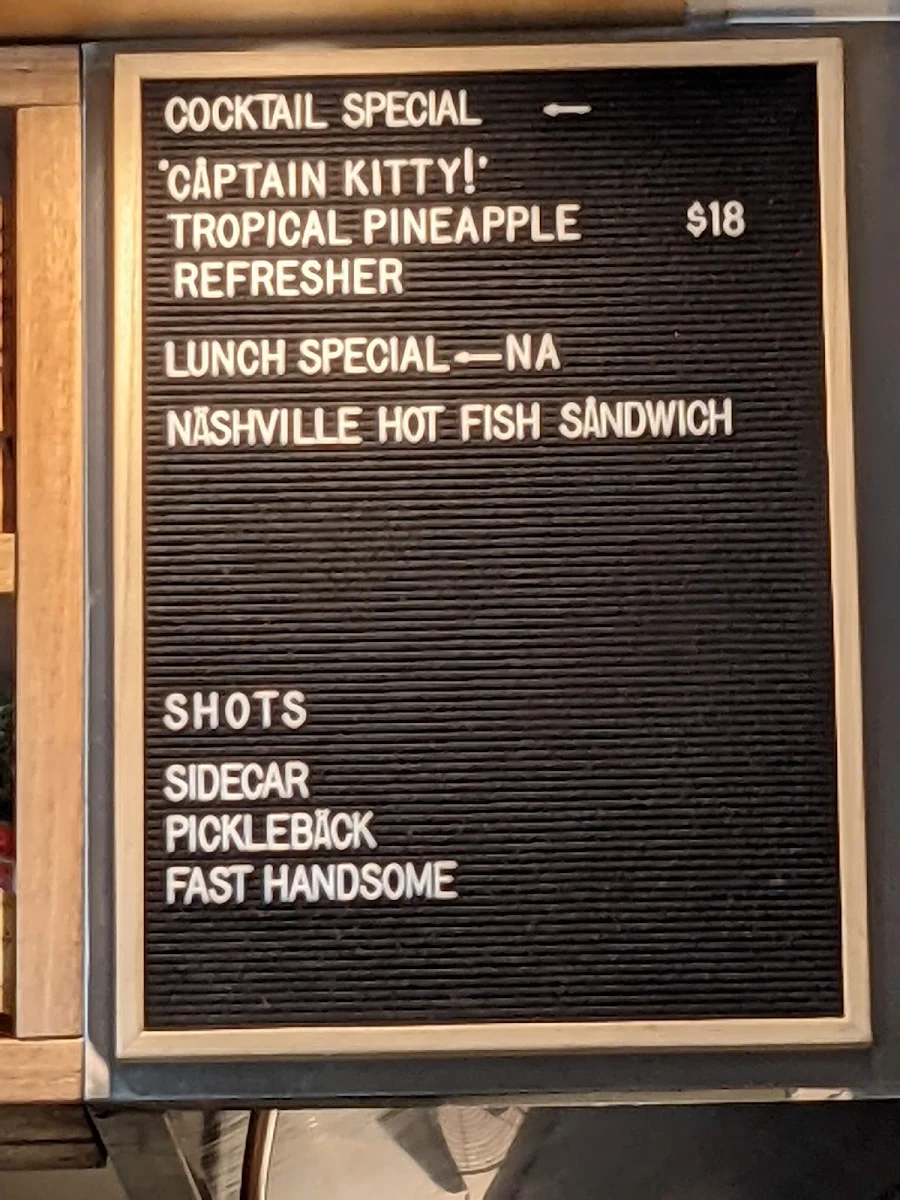 COCKTAIL SPECIAL —
'CÅPTAIN KITTY!'
TROPICAL PINEAPPLE $18
REFRESHER
LUNCH SPECIAL—NA
NÄSHVILLE HOT FISH SÅNDWICH
SHOTS
SIDECAR
PICKLEBÄCK
FAST HANDSOME